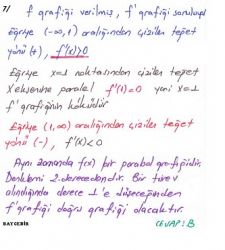 7/ f grafiği verilmiş, f' grafiği soruluyor
Eğriye (-∞,1) aralığından çizilen teğet
yönü (+), f'(x)>0
Eğriye x=1 noktasından çizilen teğet
X eksenine paralel f'(1)=0 yani x=1
f' grafiğinin köküdür
Eğriye (1,∞) aralığından çizilen teğet
yönü (-), f'(x)<0
Aynı zamanda f(x) bir parabol grafiğidir.
Denklemi 2. derecedendir. Bir türev
alındığında derece 1'e düşeceğinden
f' grafiği doğru grafiği olacaktır.
CEVAP: B
BAYGEBİR